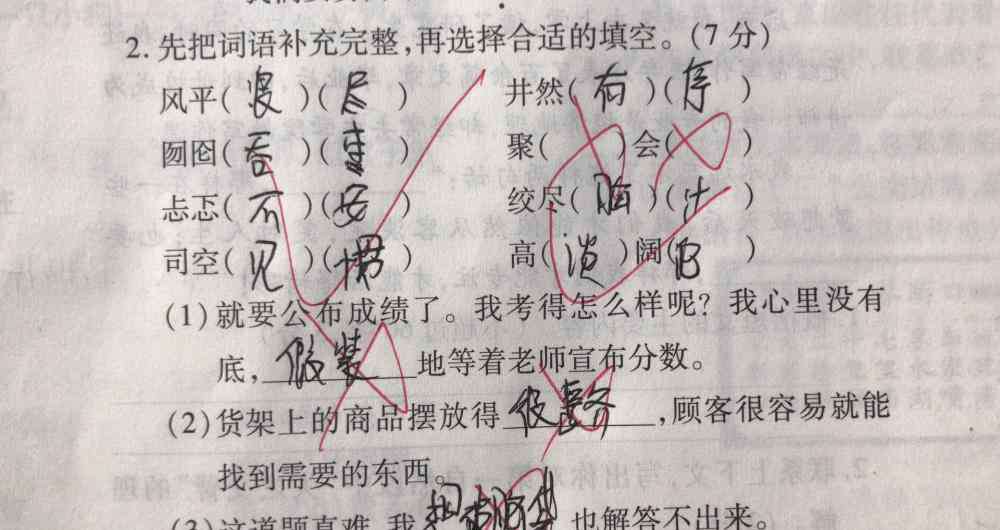 2.先把词语补充完整,再选择合适的填空。(7分)
风平( 浪 )( 尽 ) 井然( 有 )( 序 )
囫囵( 吞 )( 枣 ) 聚( )会( )
忐忑( 不 )( 安 ) 绞尽( 脑 )( 汁 )
司空( 见 )( 惯 ) 高( 谈 )阔( 论 )
(1)就要公布成绩了。我考得怎么样呢?我心里没有
底,假装地等着老师宣布分数。
(2)货架上的商品摆放得,顾客很容易就能
找到需要的东西。
(3)这道题真难,我 也解答不出来。